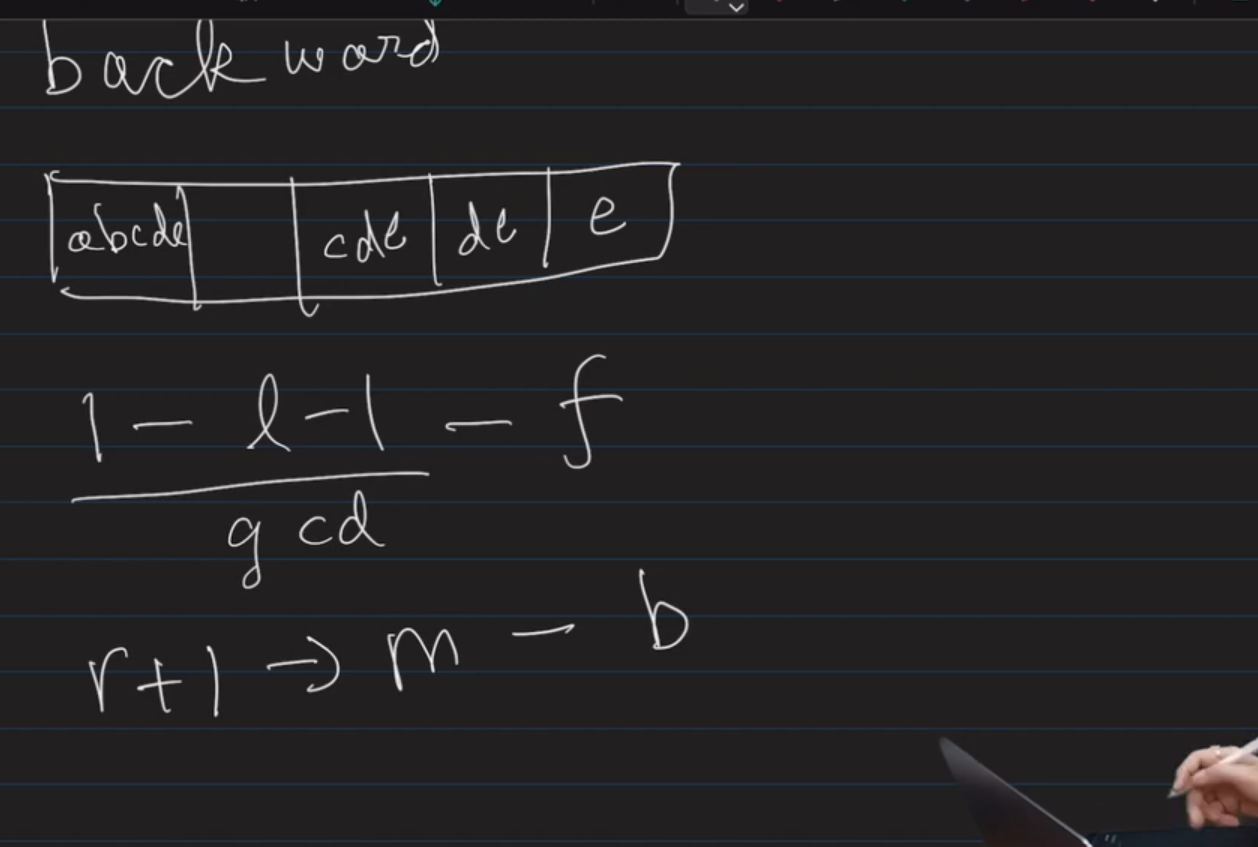 backward
abcde cde de e
1 - l-1 - f
gcd
r+1 → m - b